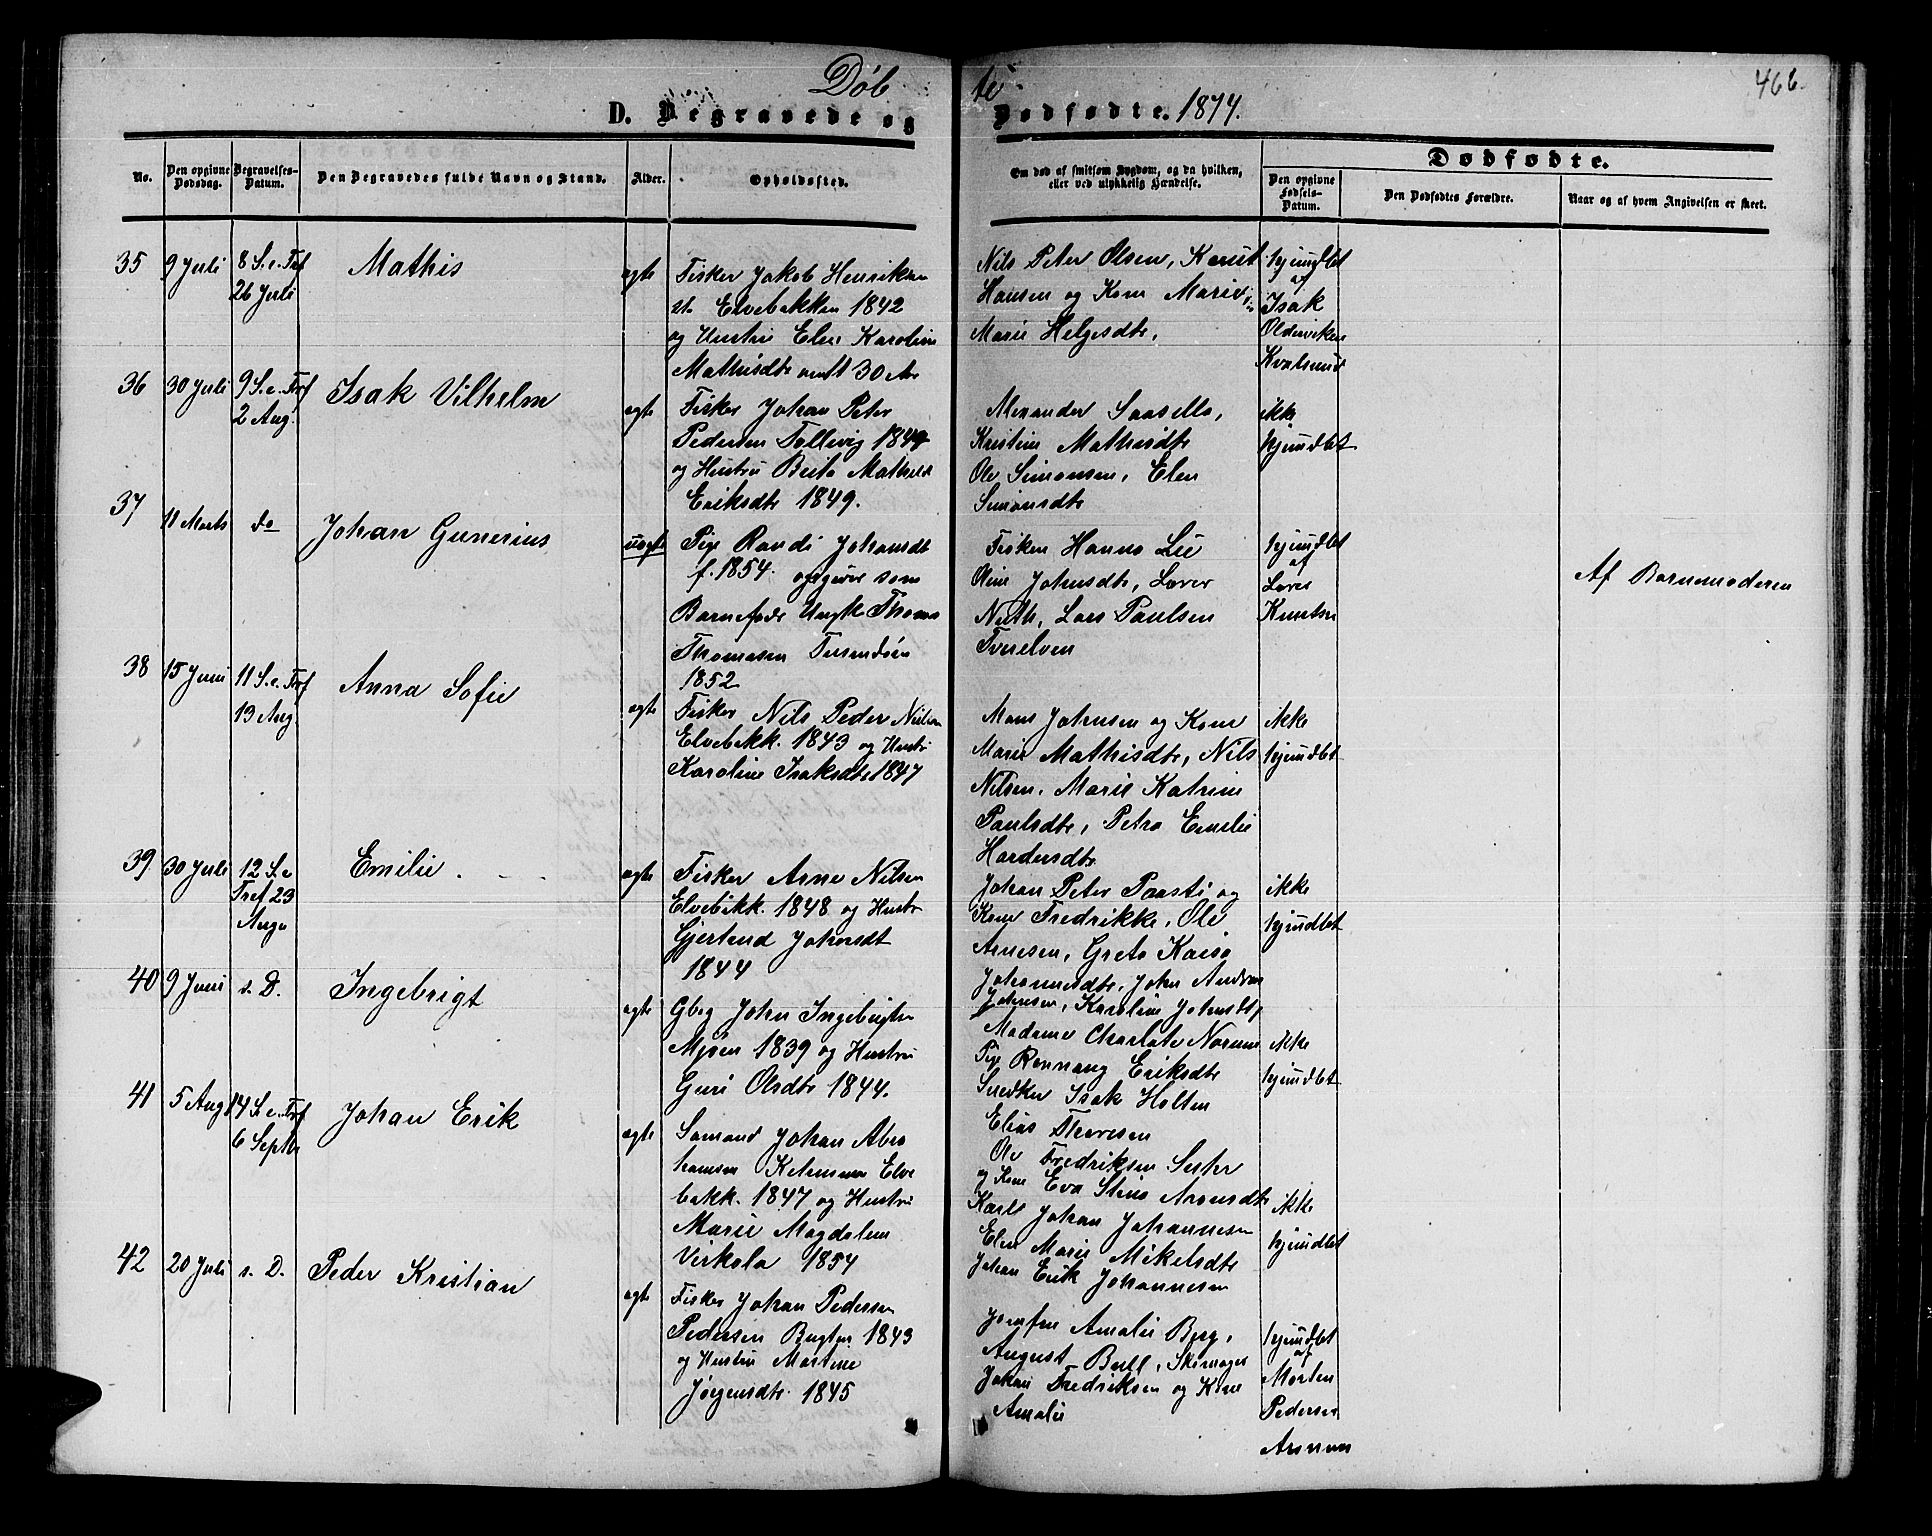 Døbte
466.
D. Begravede og Dødfødte. 1874.
Dødfødte.
No.
Den opgivne Dødsdag.
Begravelses-Datum.
Den Begravedes fulde Navn og Stand.
Alder.
Opholdssted.
Om død af smitsom Sygdom, og da hvilken,
eller ved ulykkelig Hændelse.
Den opgivne Fødsels-Datum.
Den Dødfødtes Forældre.
Naar og af hvem Angivelsen er skeet.
35
9 Juli
8 S. e. Tref
26 Juli
Mathis
ægte
Fisker Jakob Henriksen
Elvebakken 1842
og Hustru Elen Karoline
Mathisdtr omtt 30 Aar
Nils Peter Olsen, Knut
Hansen og Kone Marie
Marie Helgesdtr,
hjemdbt
af
Isak
Olderviken
Kvalsund
36
30 Juli
9 S. e. Tref
2 Aug.
Isak Vilhelm
ægte
Fisker Johan Peter
Pedersen Tallevig
og Hustru Brita Mathild
Eriksdtr 1849.
Alexander
Kristine Mathisdtr
Ole Simonsen, Elen
Simonsdtr
ikke
hjemdbt
37
11 Marts
do
Johan Gunerius
uægte
Pige Randi Johansdt
f. 1854. opgiver som
Barnefader Ungk Thomas
Thomasen
1852
Fisken Hanna Lie
Oline Johnsdtr,
Lars Paulsen
Tverelven
hjemdbt
af
Af Barnemoderen
38
15 Juni
11 S. e. Tref
Aug.
Anna Sofie
ægte
Fisker Nils Peder Nilsen
Elvebakk. 1843 og Hustru
Karoline Isaksdtr 1847
Mons Johnsen og Kone
Marie Mathisdtr, Nils
Nilsen, Marie Katrine
Paulsdtr, Petra Emelie
ikke
hjemdbt
39
30 Juli
12 S. e
Tref 23
Aug
Emilie
ægte
Fisker Arne Nilsen
Elvebakk. 1848 og Hustr
Gjertrud Johnsdt
1844
Johan Peter Paasti og
Kone Fredrikke, Ole
Arnesen, Greta Kaisa
Johannesdtr, John Andreas
Johnsen, Karoline Johnsdtr
ikke
hjemdbt
40
9 Juni
s. D.
Ingebrigt
ægte
Gbrg John Ingebrigtsn
Mjøen 1839 og Hustru
Guri Olsdtr 1844.
Madame Charlote Norum
Pige Rønnaug Eriksdtr
Snedker Isak Holten
Elias Thoresen
ikke
hjemdbt
41
5 Aug
14 S. e. Tref
6 Septbr
Johan Erik
ægte
Sømand Johan Abra
hamsen Elve
bakk. 1847 og Hustru
Marie Magdalena
Virkola 1854
Ole Fredriksen Suhr
og Kone Eva Stina Aronsdtr
Karl Johan Johannesen
Elen Marie Mikelsdtr
Johan Erik Johannesen
ikke
hjemdbt
42
20 Juli
s. D.
Peder Kristian
ægte
Fisker Johan Pedersen
Pedersen Bugten 1843
og Hustru Martine
Jørgensdtr. 1845
Jomfru Amalie Berg,
August Bull, Skomager
Johan Fredriksen og Kone
Amalie
hjemdbt
af
Morten
Pedersen